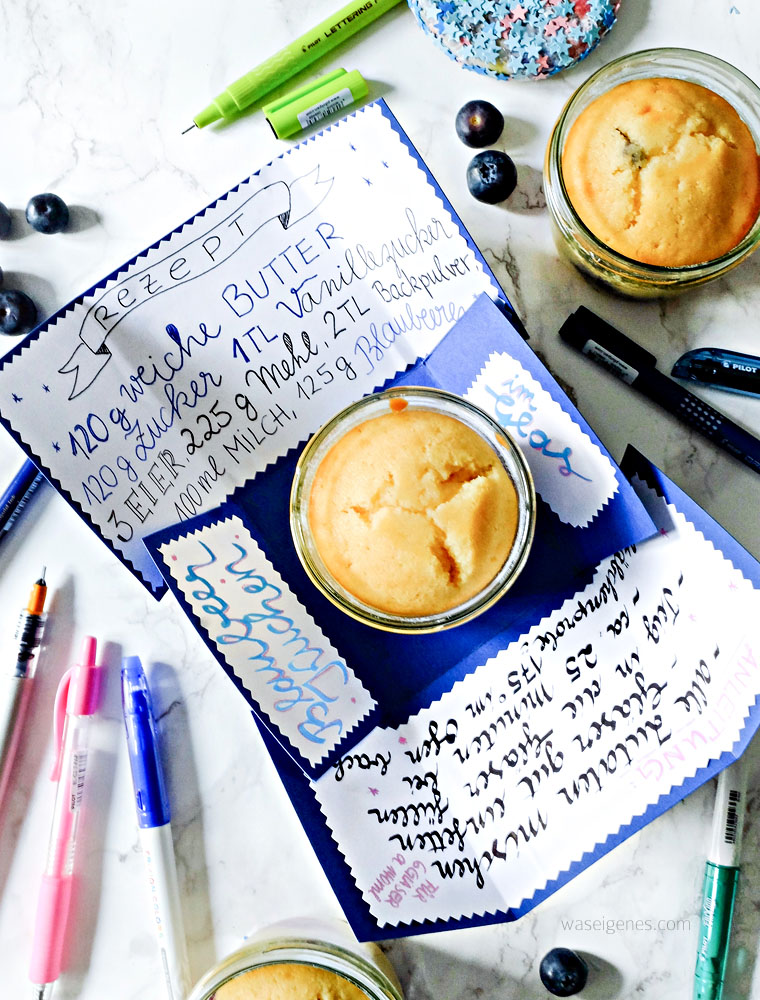 PILOT LETTERING P
REZEPT
120g weiche BUTTER
120g Zucker 1TL Vanillezucker
3 EIER 225g Mehl, 2TL Backpulver
100ml MILCH, 125g Blaubeeren
im
Glas
PILOT
Blaubeer
Kuchen
ANLEITUNG:
- alle Zutaten mischen
- Gläser gut einfetten
- Teig in die Gläser füllen
- ca. 25 Minuten bei
175° im Ofen back
FÜR
6 GLÄSER
waseigenes.com